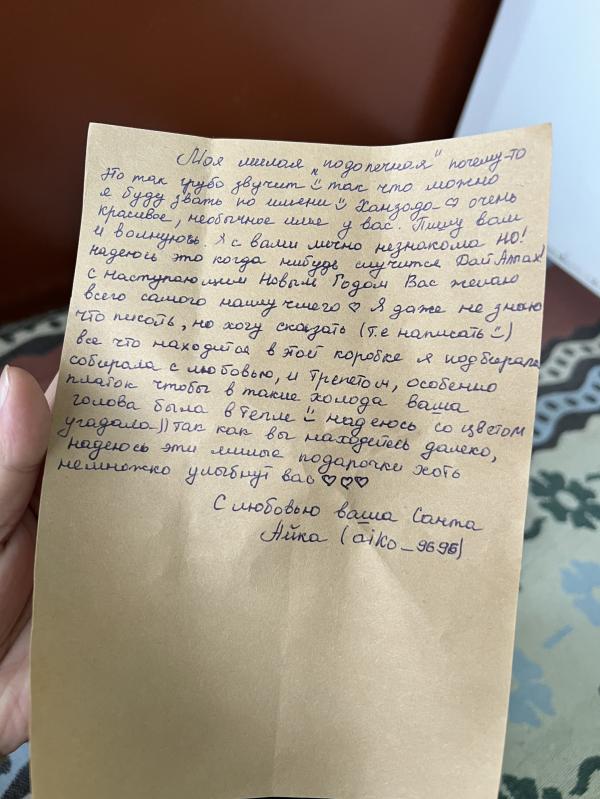 Моя милая „подопечная" почему-то
Но так грубо звучит :) так что можно
я буду звать по имени :) Ханзода ♡ очень
красивое, необычное имя у вас. Пишу вам
и волнуюсь. Я с вами лично незнакома НО!
надеюсь это когда нибудь случится Дай Аллах!
с наступающим Новым Годом Вас желаю
всего самого наилучшего ♡ Я даже не знаю
что писать, но хочу сказать (т.е написать :))
все что находится в этой коробке я подбирала
собирала с любовью, и трепетом, особенно
платок чтобы в такие холода ваша
голова была в тепле :) надеюсь со цветом
угадала)) так как вы находитесь далеко,
надеюсь эти милые подарочки хоть
немножко улыбнут вас ♡♡♡
С любовью ваша Санта
Айка (aiko_9696)